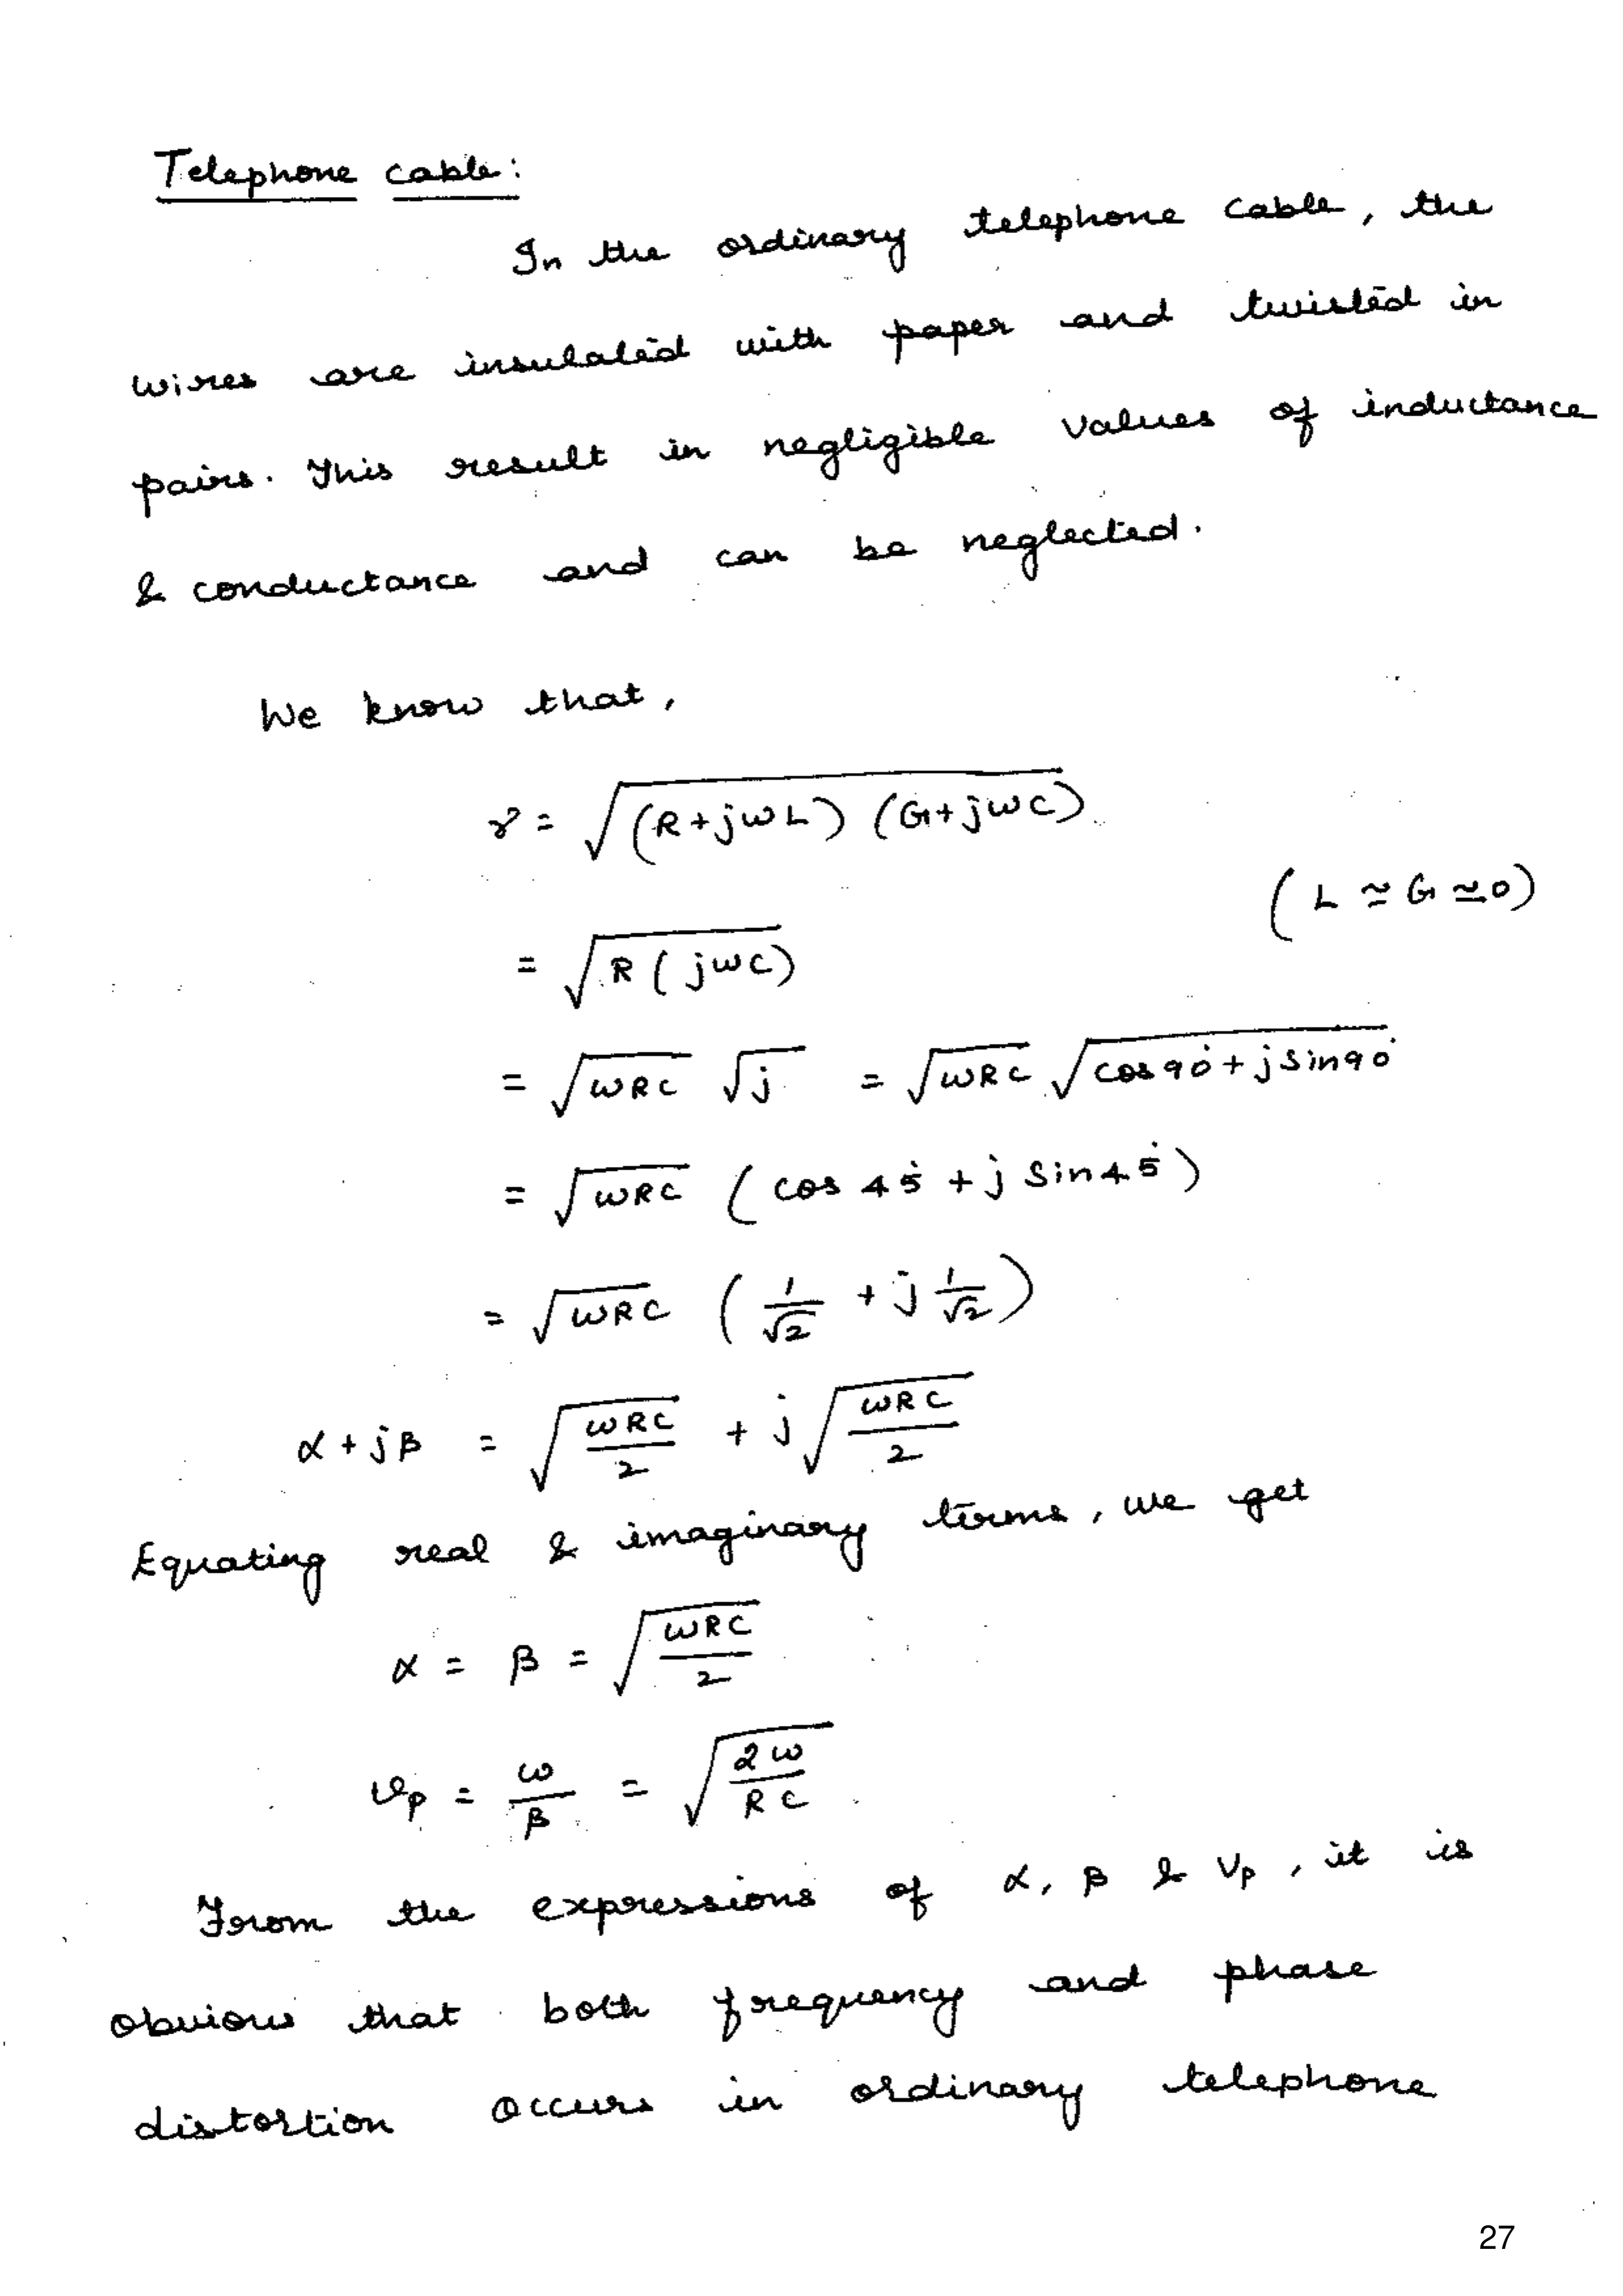 Telephone cable:
In the ordinary telephone cable, the
wires are insulated with paper and twisted in
pairs. This result in negligible values of inductance
& conductance and can be neglected.
We know that,
γ = √((R+jωL) (G+jωC))
(L ≃ G ≃ 0)
= √(R(jωC))
= √(ωRC) √j = √(ωRC) √(cos90° + jsin90°)
= √(ωRC) (cos 45° + j Sin45°)
= √(ωRC) (1/√2 + j 1/√2)
α + jβ = √(ωRC/2) + j√(ωRC/2)
Equating real & imaginary terms, we get
α = β = √(ωRC/2)
υp = ω/β = √(2ω/RC)
From the expressions of α, β & Vp, it is
obvious that both frequency and phase
distortion occurs in ordinary telephone
27